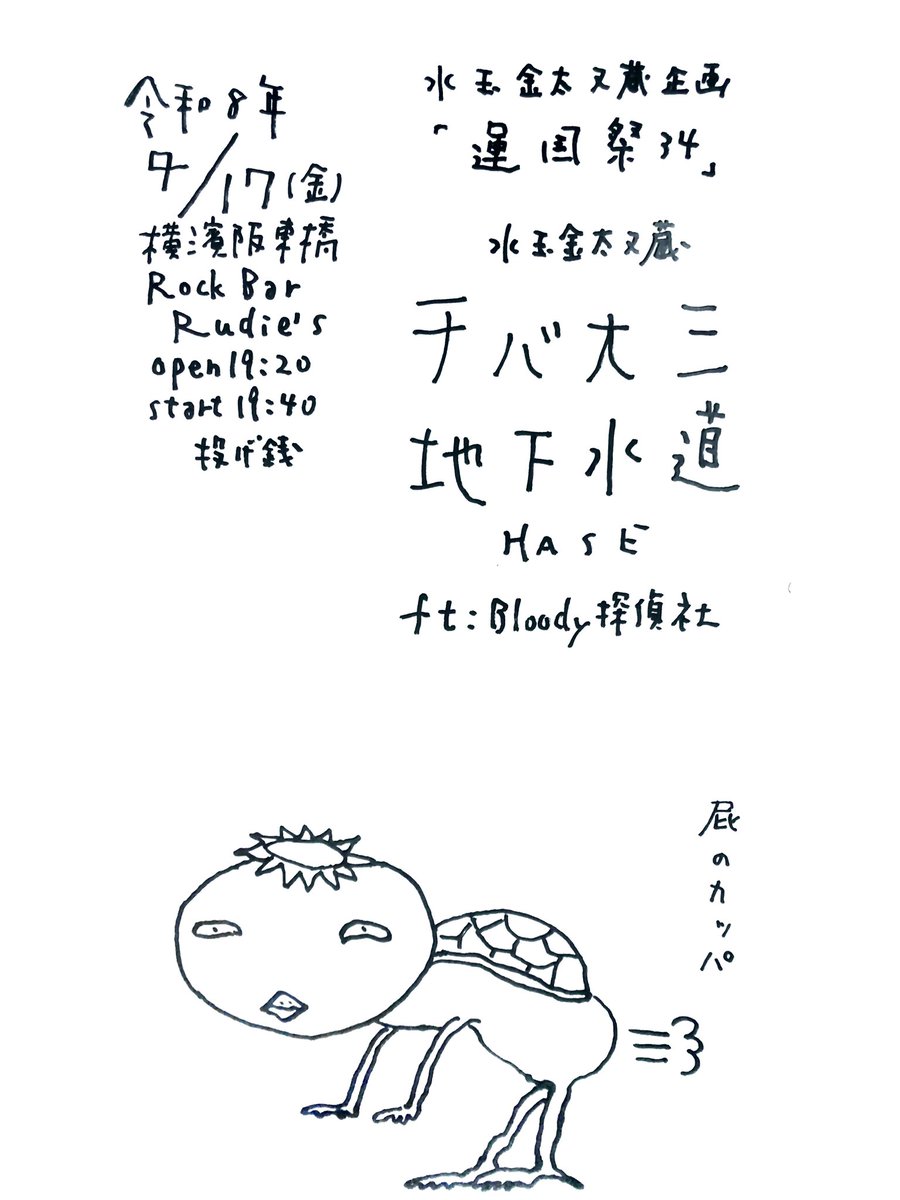 令和8年
4/17(金)
横濱阪東橋
Rock Bar
Rudie's
open19:20
start19:40
投げ銭
水玉金太又蔵企画
「運国祭34」
水玉金太又蔵
チバ大三
地下水道
HASE
ft:Bloody探偵社
屁のカッパ